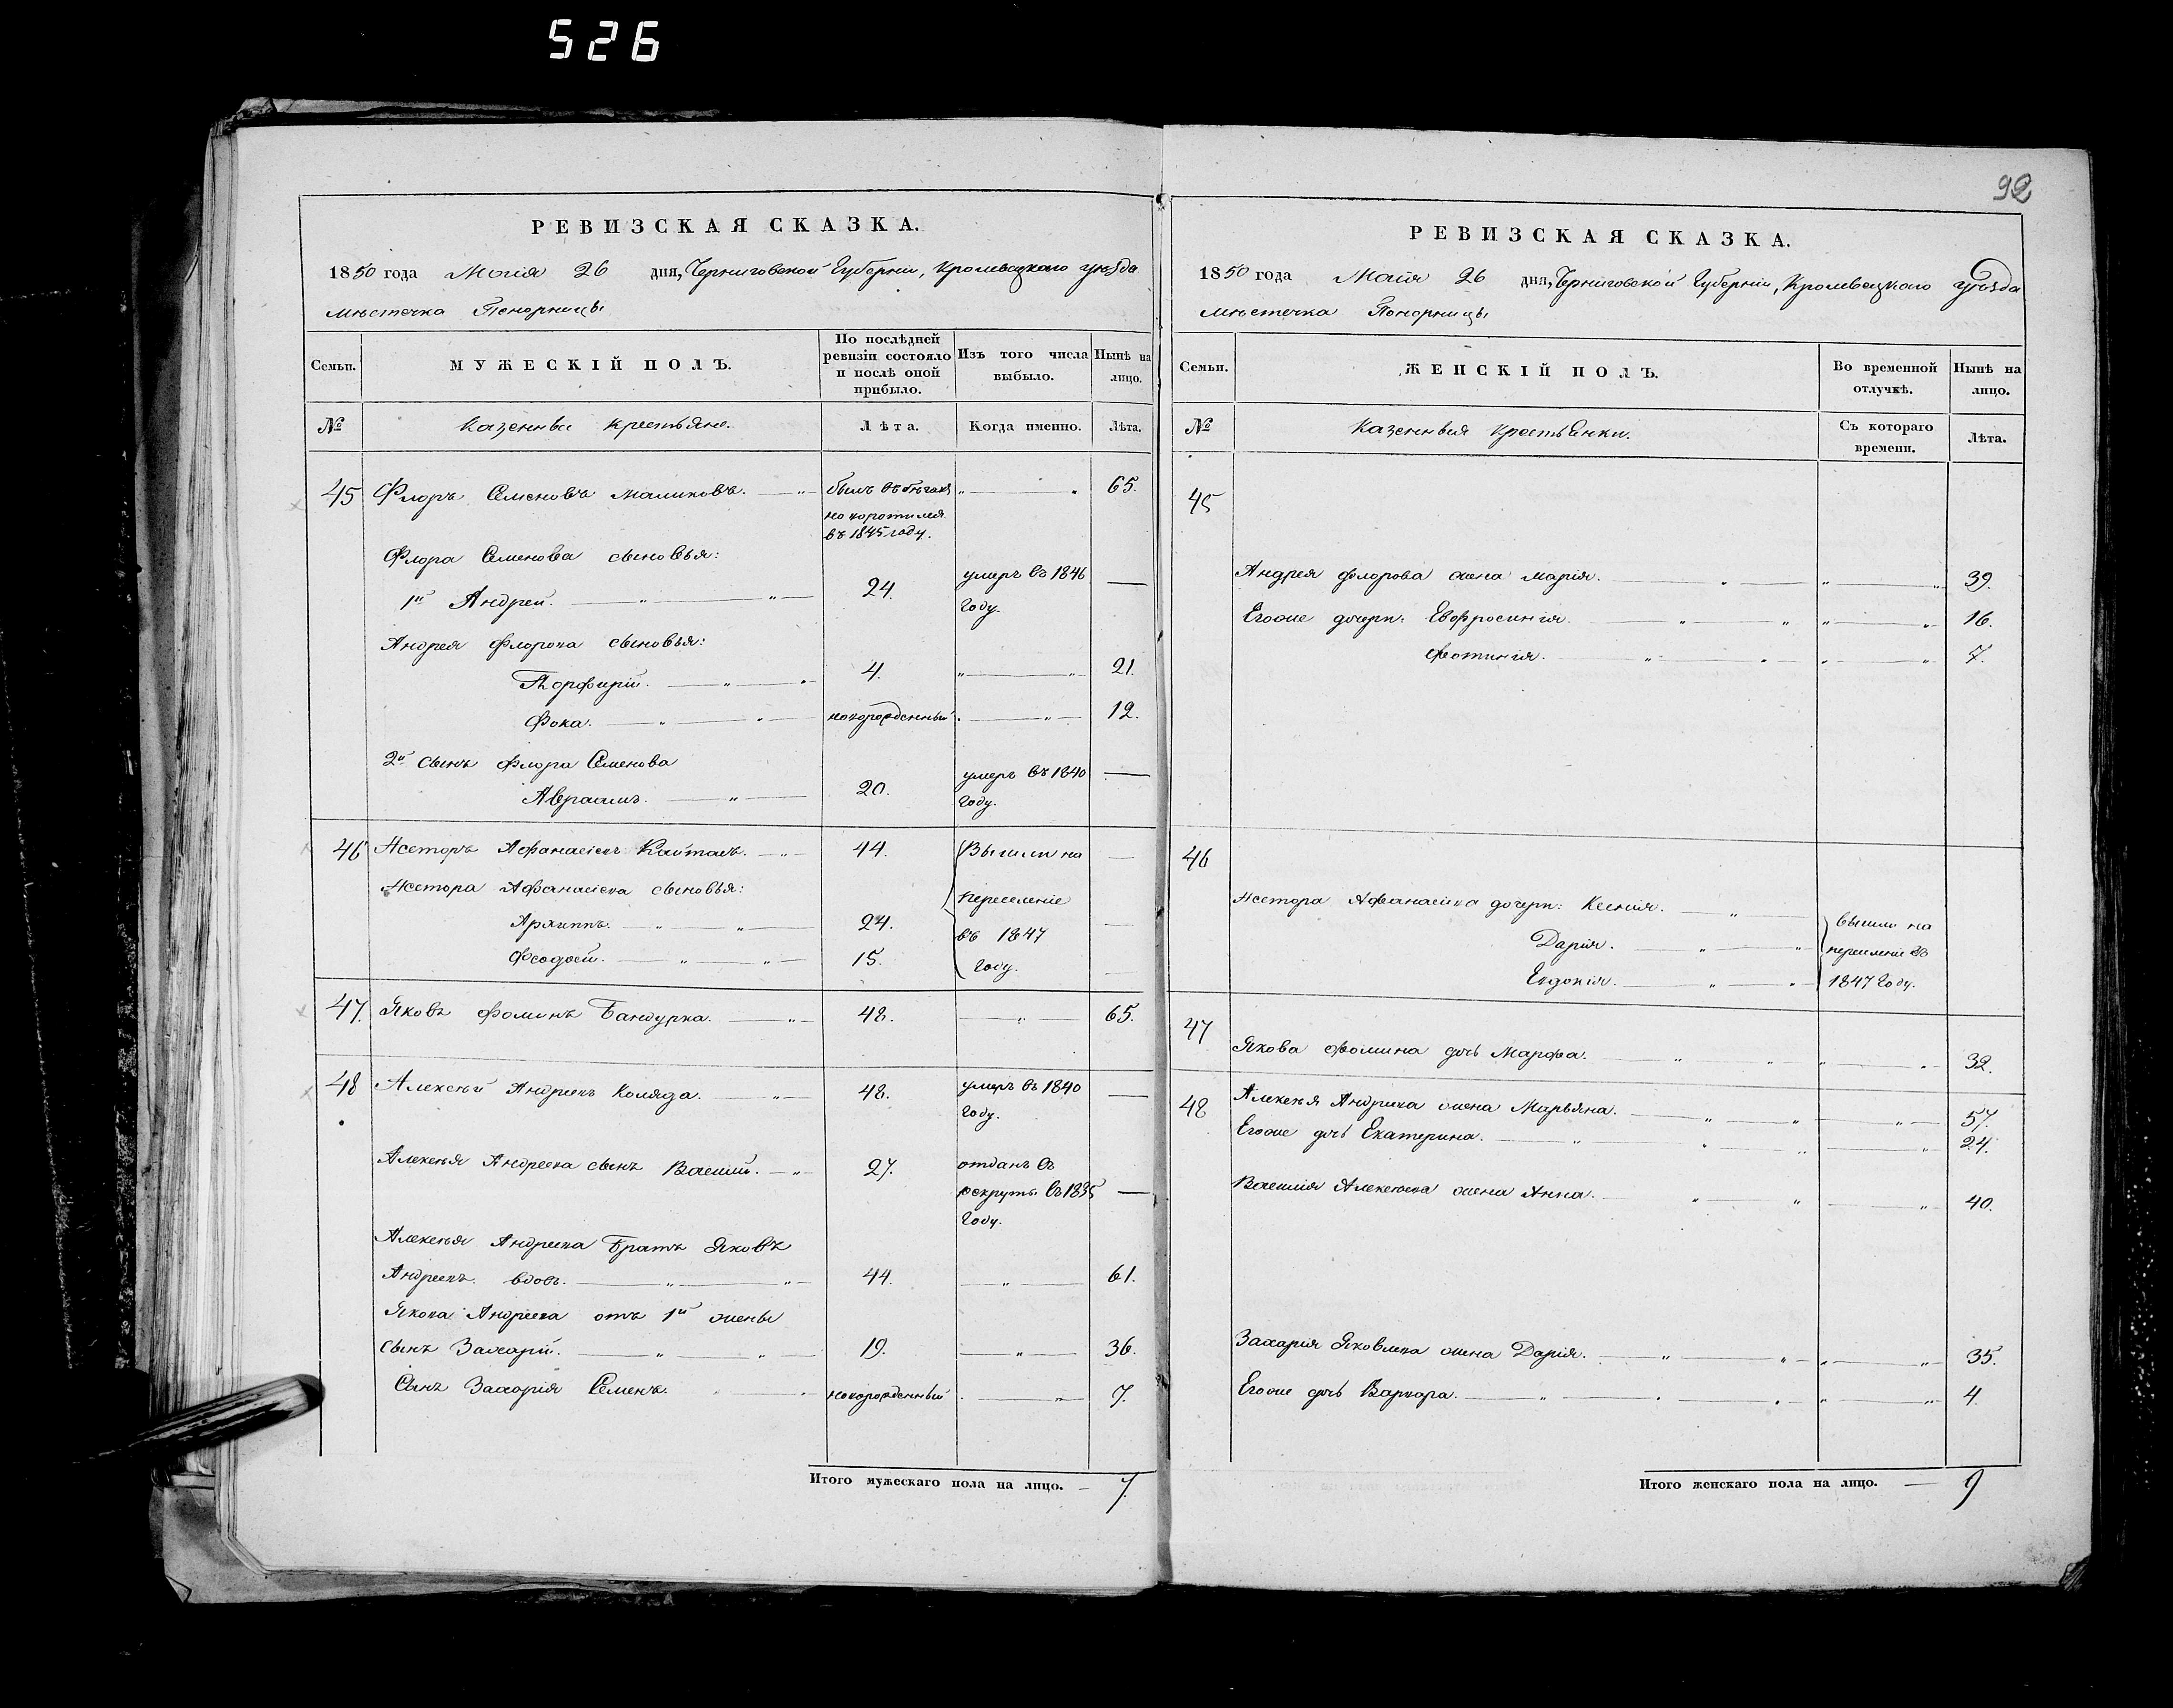 526
92
РЕВИЗСКАЯ СКАЗКА.
1850 года Маія 26 дня, Черниговской Губерніи, Кролевецкаго уѣзда
мѣстечка Понорницы
Семьи.
МУЖЕСКІЙ ПОЛЪ.
По послѣдней
ревизіи состояло
и послѣ оной
прибыло.
Изъ того числа
выбыло.
Нынѣ на
лицо.
№
Казенные крестьяне.
Лѣта.
Когда именно.
Лѣта.
45 Флоръ Семеновъ Маликовъ. былъ въ бѣгахъ 65.
но воротился
въ 1845 году.
Флора Семенова сыновья:
1й Андрей. 24. умеръ въ 1846
году.
Андрея Флорова сыновья:
Порфирій. 4. 21.
Фока. новорожденный 12.
2й сынъ Флора Семенова
Авраамъ. 20. умеръ въ 1840
году.
46 Несторъ Афанасіевъ 44. Вышли на
Нестора Афанасіева сыновья: переселеніе
Архиппъ. 24. въ 1847
Феодосій. 15. году.
47. Яковъ Фоминъ Бандурка. 48. 65.
48 Алексѣй Андреевъ Коляда. 48. умеръ въ 1840
году.
Алексѣя Андреева сынъ Василій. 27. отданъ въ
рекруты въ 1835
году.
Алексѣя Андреева братъ Яковъ
Андреевъ вдовъ. 44. 61.
Якова Андреева отъ 1й жены
сынъ Захарій. 19. 36.
Сынъ Захарія Семенъ. новорожденный 7.
Итого мужескаго пола на лицо. 7.
РЕВИЗСКАЯ СКАЗКА.
1850 года Маія 26 дня, Черниговской Губерніи, Кролевецкаго уѣзда
мѣстечка Понорницы
Семьи.
ЖЕНСКІЙ ПОЛЪ.
Во временной
отлучкѣ.
Нынѣ на
лицо.
№
Казенныя крестьянки.
Съ котораго
времени.
Лѣта.
45
Андрея Флорова жена Марія. 39.
Егоже дочери: Евфросинія. 16.
Фотинія. 7.
46
Нестора Афанасіева дочери: Ксенія. вышли на
Дарія. переселеніе въ
Евдокія. 1847 году.
47
Якова Фомина дочь Марфа. 32.
48 Алексѣя Андреева жена Марьяна. 57.
Егоже дочь Екатерина. 24.
Василія Алексѣева жена Анна. 40.
Захарія Яковлева жена Дарія. 35.
Егоже дочь Варвара. 4.
Итого женскаго пола на лицо. 9